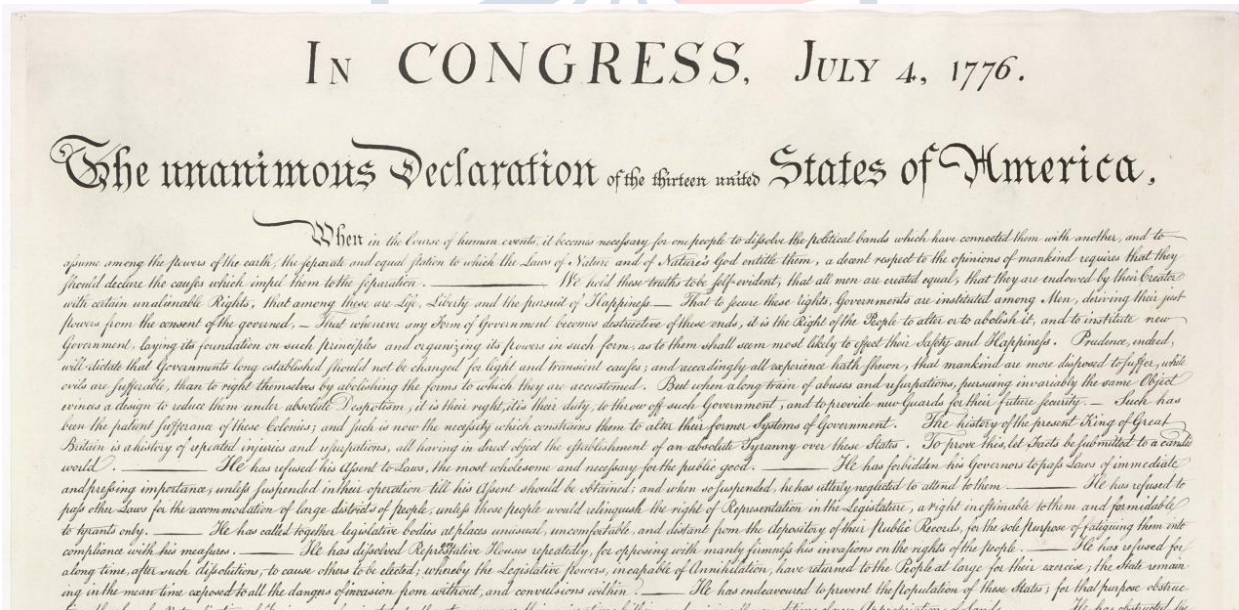 IN CONGRESS, JULY 4, 1776.
The unanimous Declaration of the thirteen united States of America,
When in the Course of human events, it becomes necessary for one people to dissolve the political bands which have connected them with another, and to
assume among the powers of the earth, the separate and equal station to which the Laws of Nature and of Nature's God entitle them, a decent respect to the opinions of mankind requires that they
should declare the causes which impel them to the separation. ——— We hold these truths to be self-evident, that all men are created equal, that they are endowed by their Creator
with certain unalienable Rights, that among these are Life, Liberty and the pursuit of Happiness.— That to secure these rights, Governments are instituted among Men, deriving their just
powers from the consent of the governed, — That whenever any Form of Government becomes destructive of these ends, it is the Right of the People to alter or to abolish it, and to institute new
Government, laying its foundation on such principles and organizing its powers in such form, as to them shall seem most likely to effect their Safety and Happiness. Prudence, indeed,
will dictate that Governments long established should not be changed for light and transient causes; and accordingly all experience hath shewn, that mankind are more disposed to suffer, while
evils are sufferable, than to right themselves by abolishing the forms to which they are accustomed. But when a long train of abuses and usurpations, pursuing invariably the same Object
evinces a design to reduce them under absolute Despotism, it is their right, it is their duty, to throw off such Government, and to provide new Guards for their future security.— Such has
been the patient sufferance of these Colonies; and such is now the necessity which constrains them to alter their former Systems of Government. The history of the present King of Great
Britain is a history of repeated injuries and usurpations, all having in direct object the establishment of an absolute Tyranny over these States. To prove this, let Facts be submitted to a candid
world. ——— He has refused his Assent to Laws, the most wholesome and necessary for the public good. ——— He has forbidden his Governors to pass Laws of immediate
and pressing importance, unless suspended in their operation till his Assent should be obtained; and when so suspended, he has utterly neglected to attend to them. ——— He has refused to
pass other Laws for the accommodation of large districts of people, unless those people would relinquish the right of Representation in the Legislature, a right inestimable to them and formidable
to tyrants only. ——— He has called together legislative bodies at places unusual, uncomfortable, and distant from the depository of their Public Records, for the sole purpose of fatiguing them into
compliance with his measures. ——— He has dissolved Representative Houses repeatedly, for opposing with manly firmness his invasions on the rights of the people. ——— He has refused for
a long time, after such dissolutions, to cause others to be elected; whereby the Legislative powers, incapable of Annihilation, have returned to the People at large for their exercise; the State remain
ing in the mean time exposed to all the dangers of invasion from without, and convulsions within. ——— He has endeavoured to prevent the population of these States; for that purpose obstruc